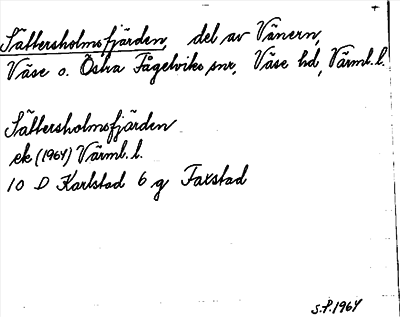 Sättersholmsfjärden, del av Vänern,
Väse o. Östra Fågelviks snr, Väse hd, Värml. l.
Sättersholmsfjärden
ek (1964) Värml. l.
10 D Karlstad 6 g Faxstad
S.P. 1964